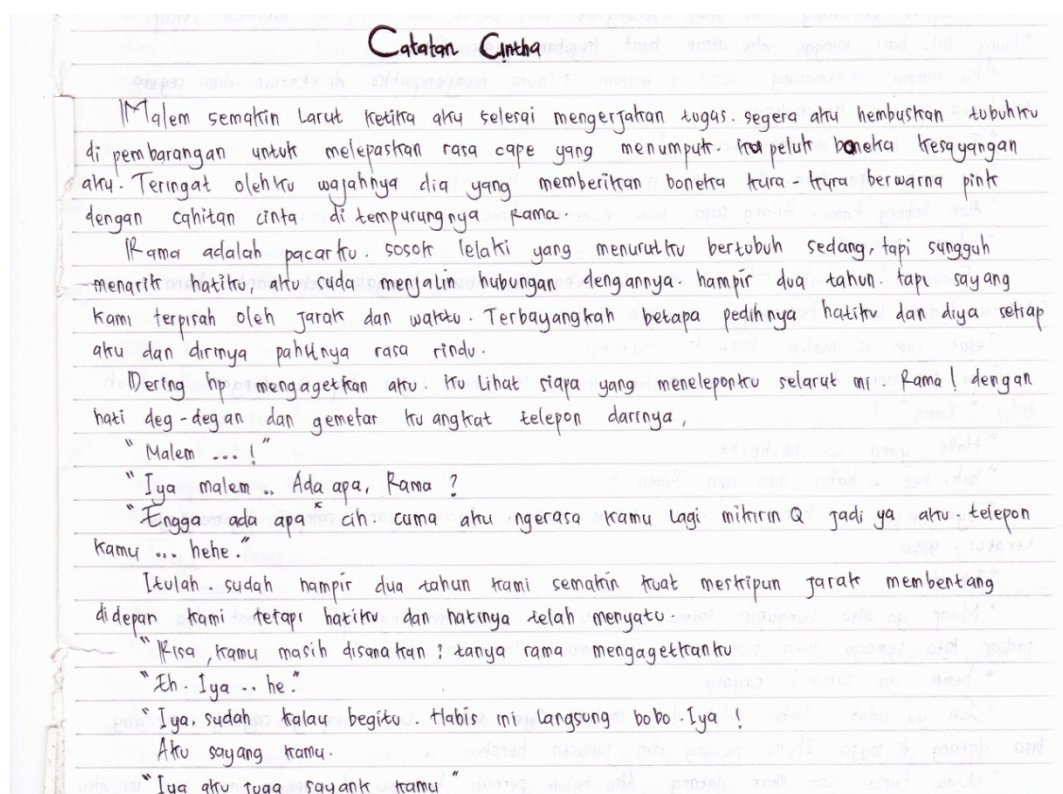 Catatan Cintha
Malem semakin Larut ketika aku selesai mengerjakan tugas. segera aku hembuskan tubuhku
di pembarangan untuk melepaskan rasa cape yang menumpuk. ku peluk boneka kesayangan
aku. Teringat olehku wajahnya dia yang memberikan boneka kura-kura berwarna pink
dengan cahitan cinta di tempurungnya Rama.
Rama adalah pacarku. sosok lelaki yang menurutku bertubuh sedang, tapi sungguh
menarik hatiku, aku suda menjalin hubungan dengannya. hampir dua tahun. tapi sayang
kami terpisah oleh jarak dan waktu. Terbayangkah betapa pedihnya hatiku dan diya setiap
aku dan dirinya pahitnya rasa rindu.
Dering hp mengagetkan aku. ku Lihat siapa yang meneleponku selarut ini. Rama! dengan
hati deg-degan dan gemetar ku angkat telepon darinya,
"Malem ...!"
"Iya malem .. Ada apa, Rama ?
"Engga ada apa" cih. cuma aku ngerasa kamu lagi mikirin Q jadi ya aku. telepon
kamu ... hehe."
Itulah. sudah hampir dua tahun kami semakin kuat meskipun jarak membentang
didepan kami tetapi hatiku dan hatinya telah menyatu.
"Risa, kamu masih disana kan ? tanya rama mengagetkanku
"Eh. Iya .. he."
"Iya, sudah kalau begitu. Habis ini langsung bobo. Iya !
Aku sayang kamu.
"Iya aku juga sayank kamu"